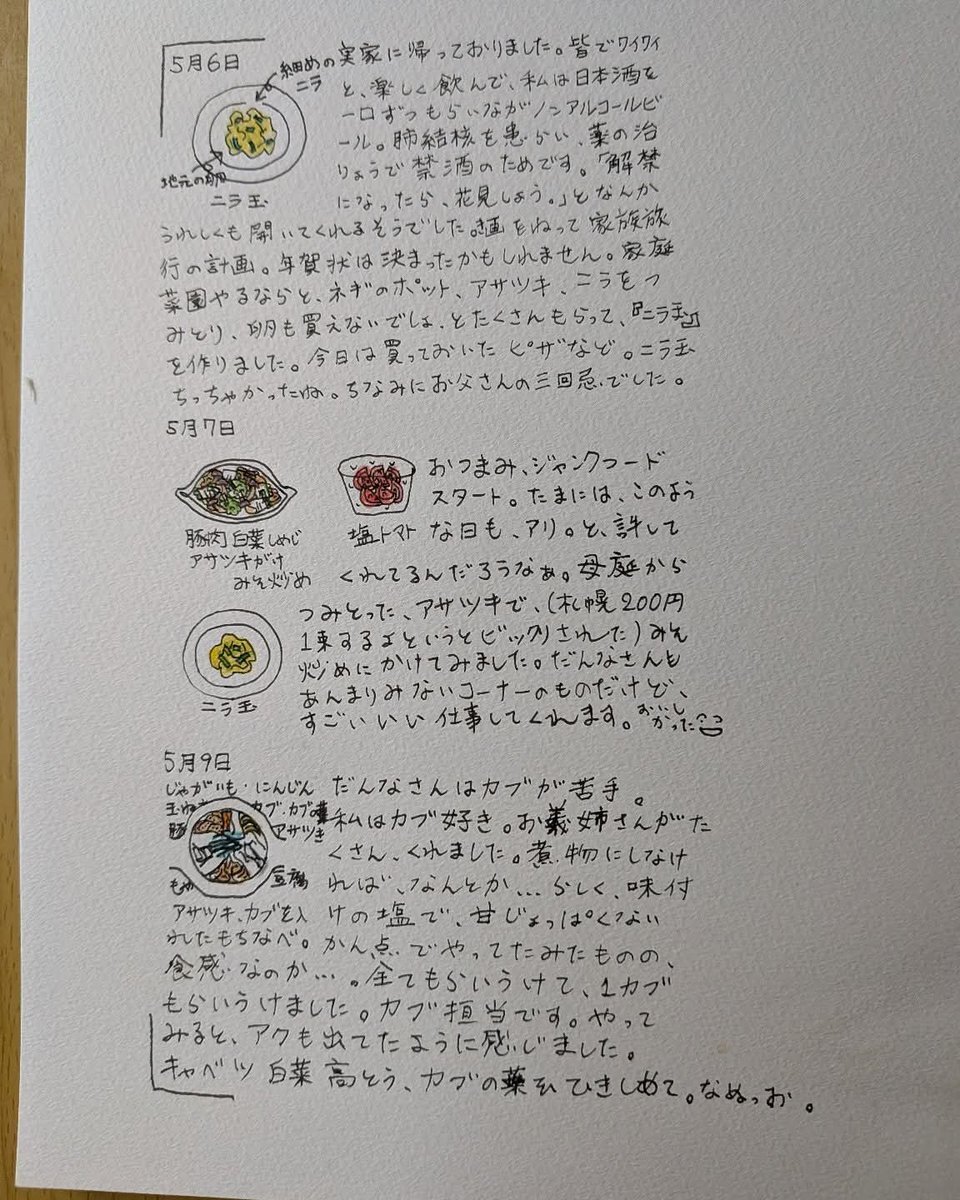 5月6日
細めの
ニラ
地元の卵
ニラ玉
実家に帰っておりました。皆でワイワイ
と、楽しく飲んで、私は日本酒を
一口ずつもらいながノンアルコールビ
ール。肺結核を患らい、薬の治
りょうで禁酒のためです。「解禁
になったら、花見しよう。」となんか
うれしくも開いてくれるそうでした。画をねって家族旅
行の計画。年賀状は決まったかもしれません。家庭
菜園やるならと、ネギのポット、アサツキ、ニラをつ
みとり、卵も買えないでしょ、とたくさんもらって、『ニラ玉』
を作りました。今日は買っておいたピザなど。ニラ玉
ちっちゃかったね。ちなみにお父さんの三回忌でした。
5月7日
豚肉 白菜 しめじ
アサツキがけ
みそ炒め
塩トマト
ニラ玉
おつまみ、ジャンクフード
スタート。たまには、このよう
な日も、アリ。と、許して
くれてるんだろうなぁ。母庭から
つみとった、アサツキで、(札幌200円
1束するよというとビックリされた)みそ
炒めにかけてみました。だんなさんも
あんまりみないコーナーのものだけど、
すごいいい仕事してくれます。おいし
かった
5月9日
じゃがいも・にんじん
カブ・カブの葉
豚
アサツキ
もや
豆腐
アサツキ、カブを入
れしたもちなべ。
だんなさんはカブが苦手。
私はカブ好き。お義姉さんがた
くさん、くれました。煮物にしなけ
れば、なんとか…らしく、味付
けの塩で、甘じょっぱくない
かん点でやってたみたものの、
食感なのか…。全てもらいうけて、1カブ
もらいうけました。カブ担当です。やって
みると、アクも出てたように感じました。
キャベツ 白菜 高とう、カブの葉をひきしめて。なぬっお。